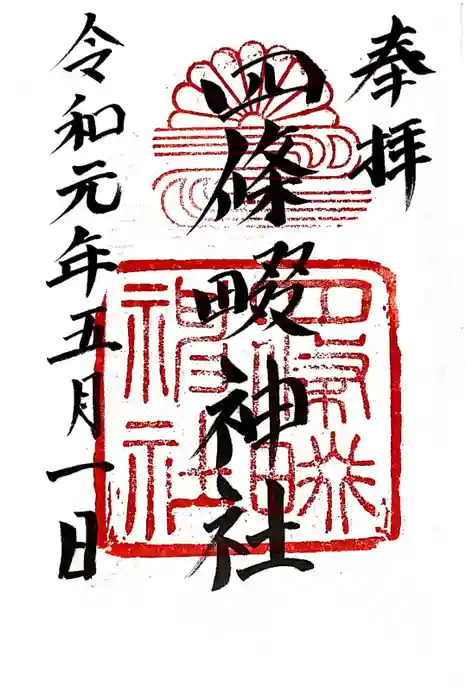 奉拝
四條畷神社
令和元年五月一日
四條畷
神社